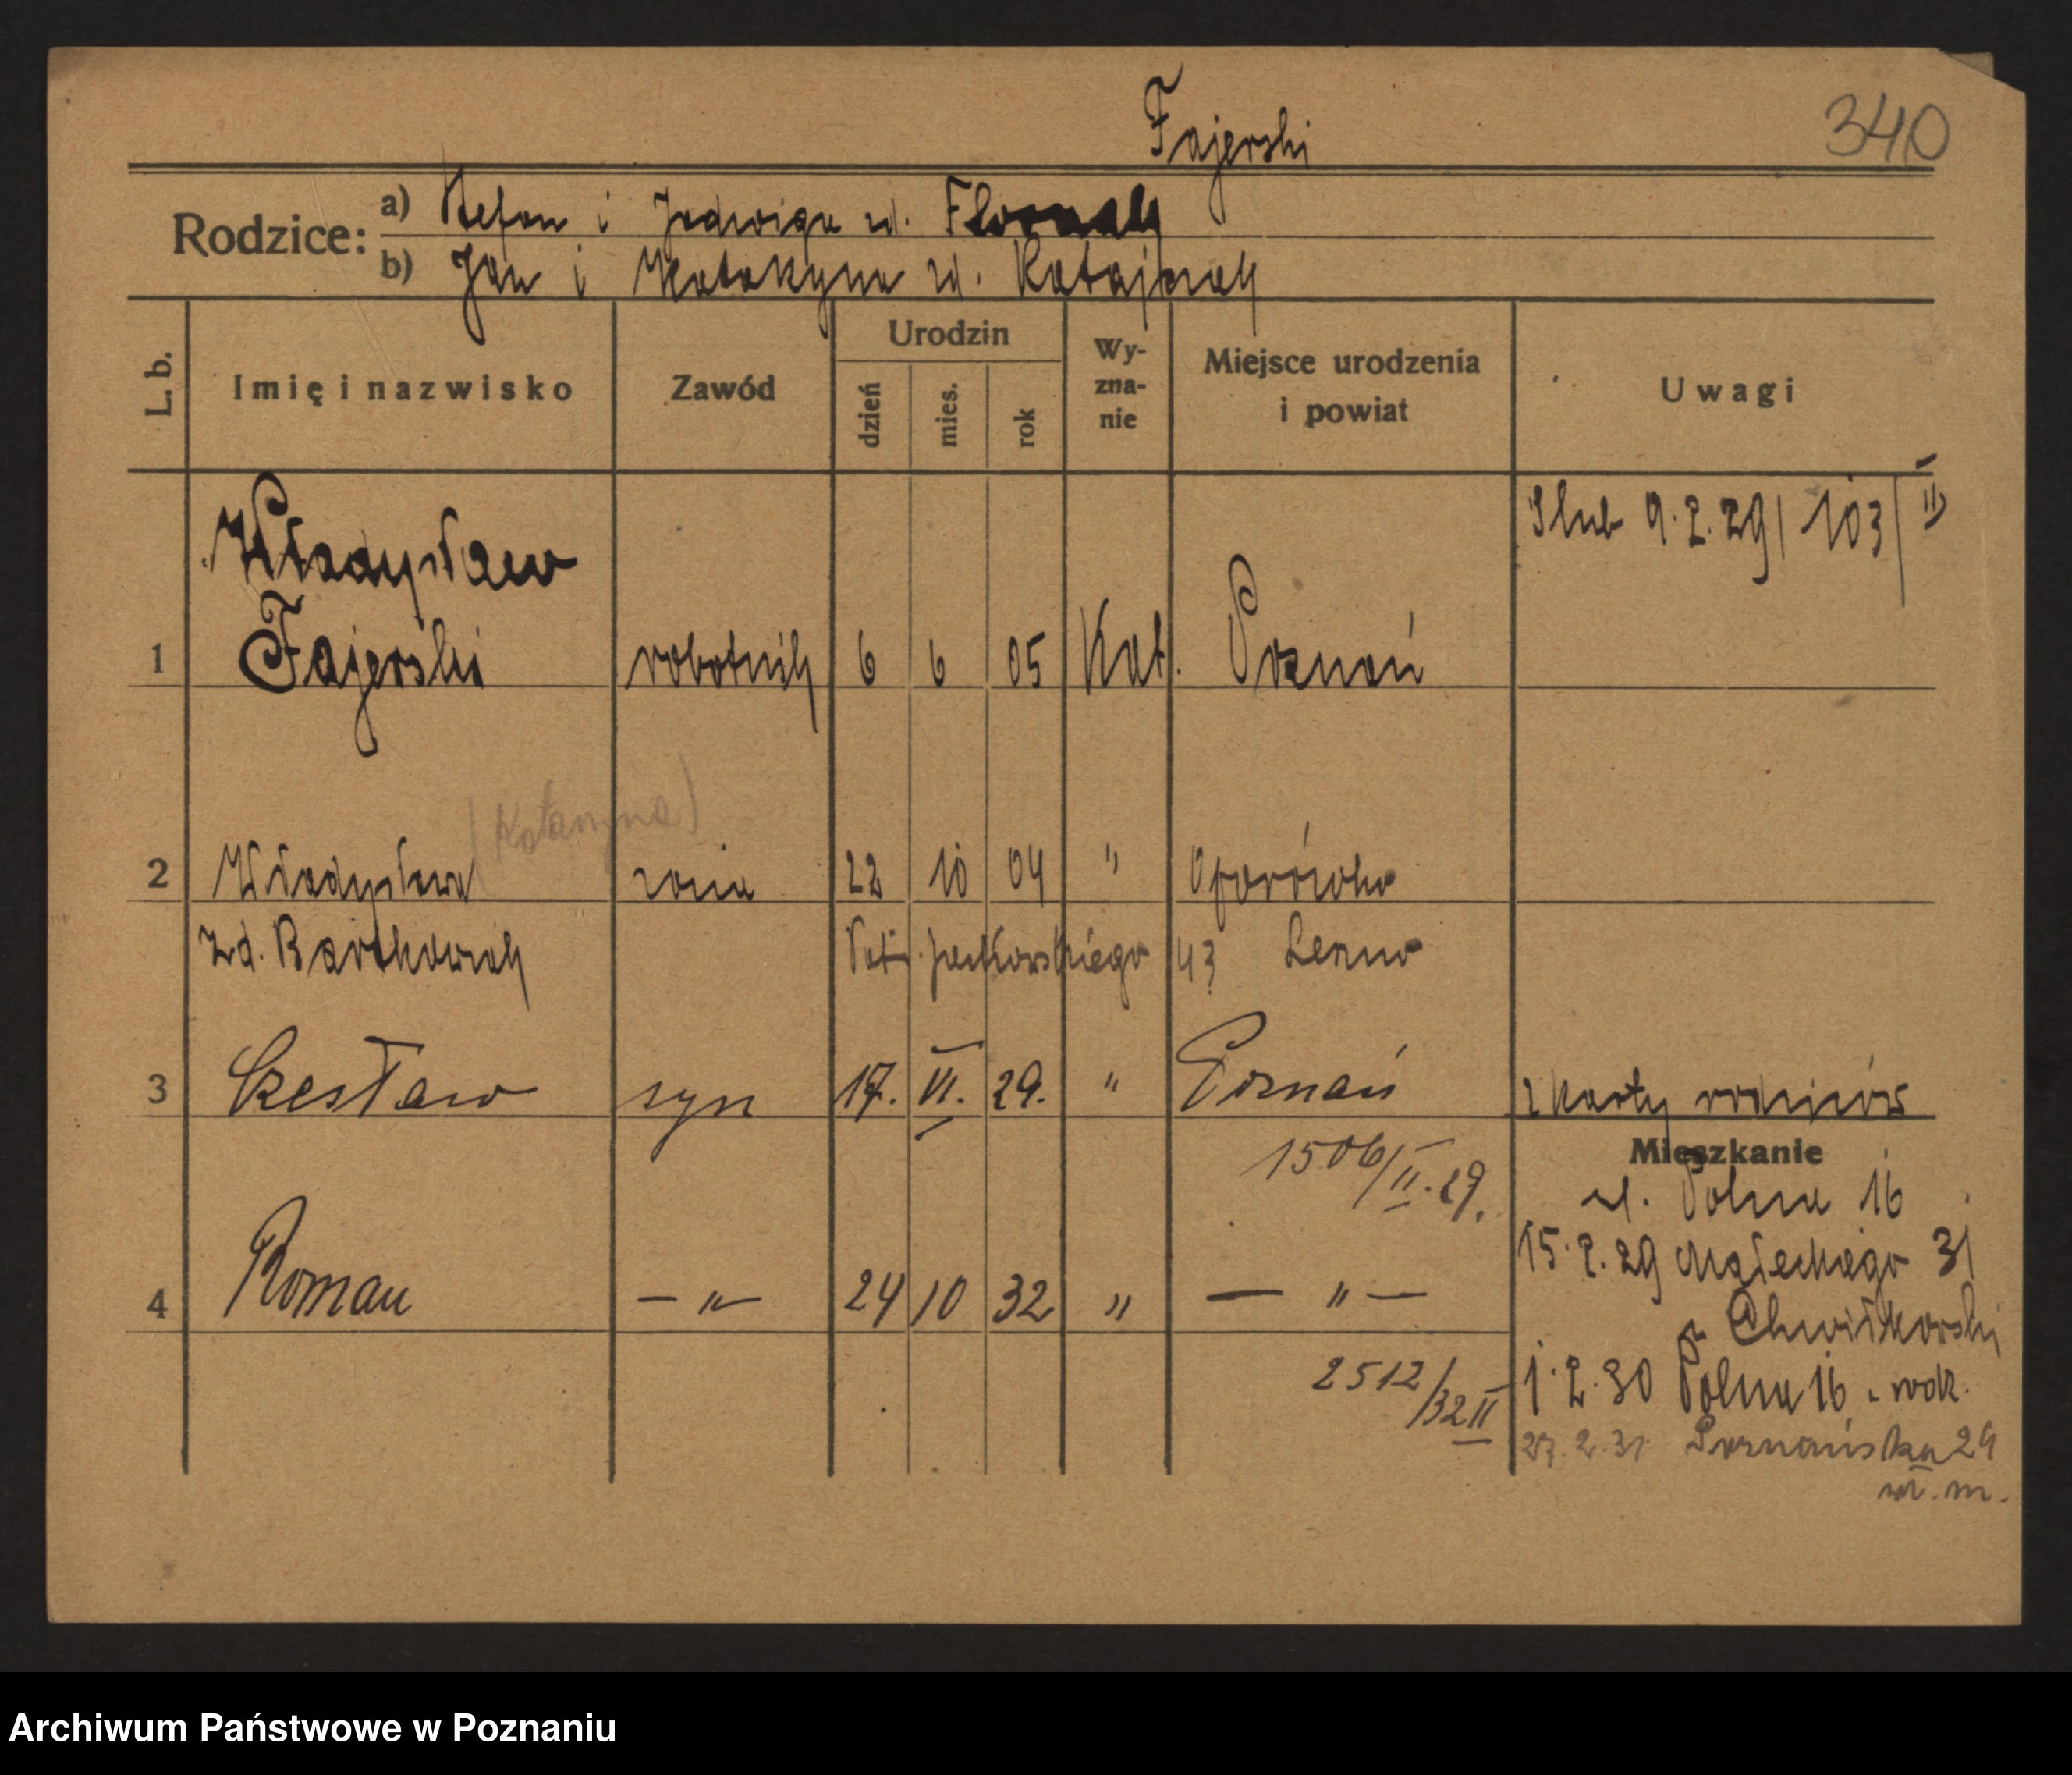 Fajerski
340
Rodzice:
a) Stefan i Jadwiga zd.
b) Jan i Katarzyna zd. Ratajczak
L. b.
Imię i nazwisko
Zawód
Urodzin
dzień
mies.
rok
Wy-
zna-
nie
Miejsce urodzenia
i powiat
Uwagi
Ślub 9.2.29 / 103 / II
Władysław
1 Fajerski robotnik 6 6 05 Kat. Poznań
(Katarzyna)
2 Władysława żona 22 10 04 " Oporówko
zd. Bartkowiak 43 Leszno
3 Czesław syn 17. VI. 29. " Poznań z karty rodziców
1506/II.29.
Mieszkanie
ul. Polna 16
4 Roman — " — 24 10 32 " — " —
15.2.29 Małeckiego 31
p. Chwiłkowski
2512/32 II
1.2.30 Polna 16 u rodz.
27.2.31 Poznańska 29
wł. m.
Archiwum Państwowe w Poznaniu